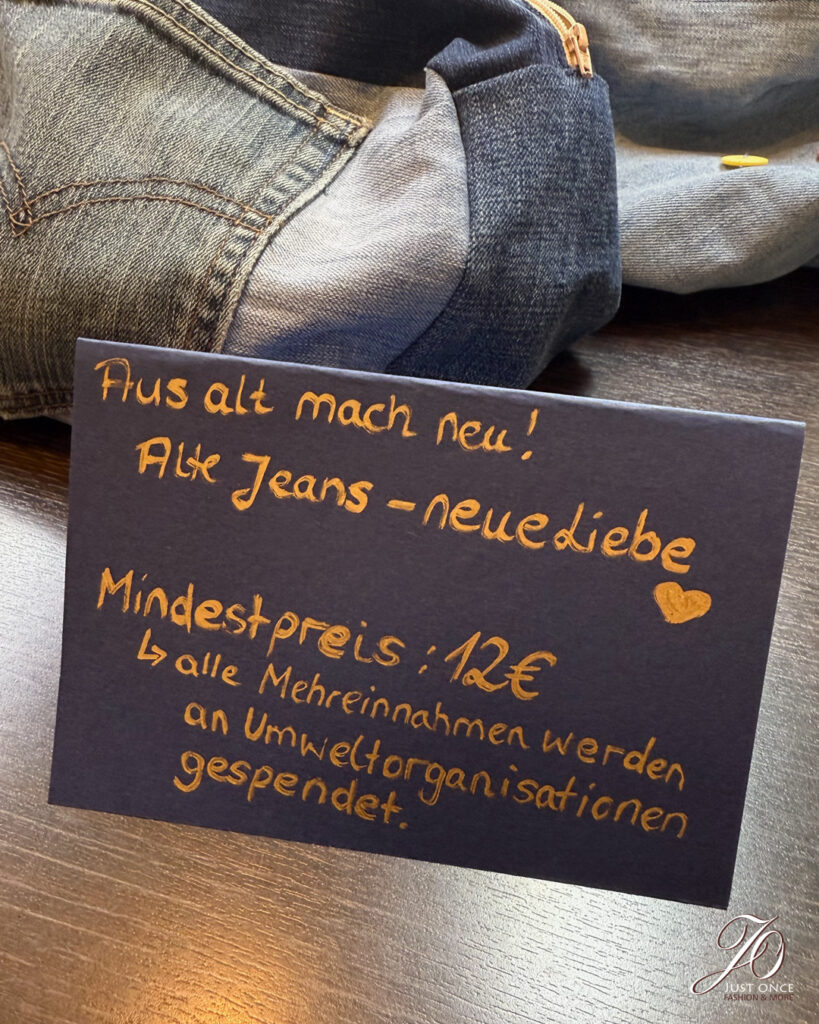 Aus alt mach neu!
Alte Jeans – neue Liebe
Mindestpreis: 12€
↳ alle Mehreinnahmen werden
an Umweltorganisationen
gespendet.
JO
JUST ONCE
FASHION & MORE